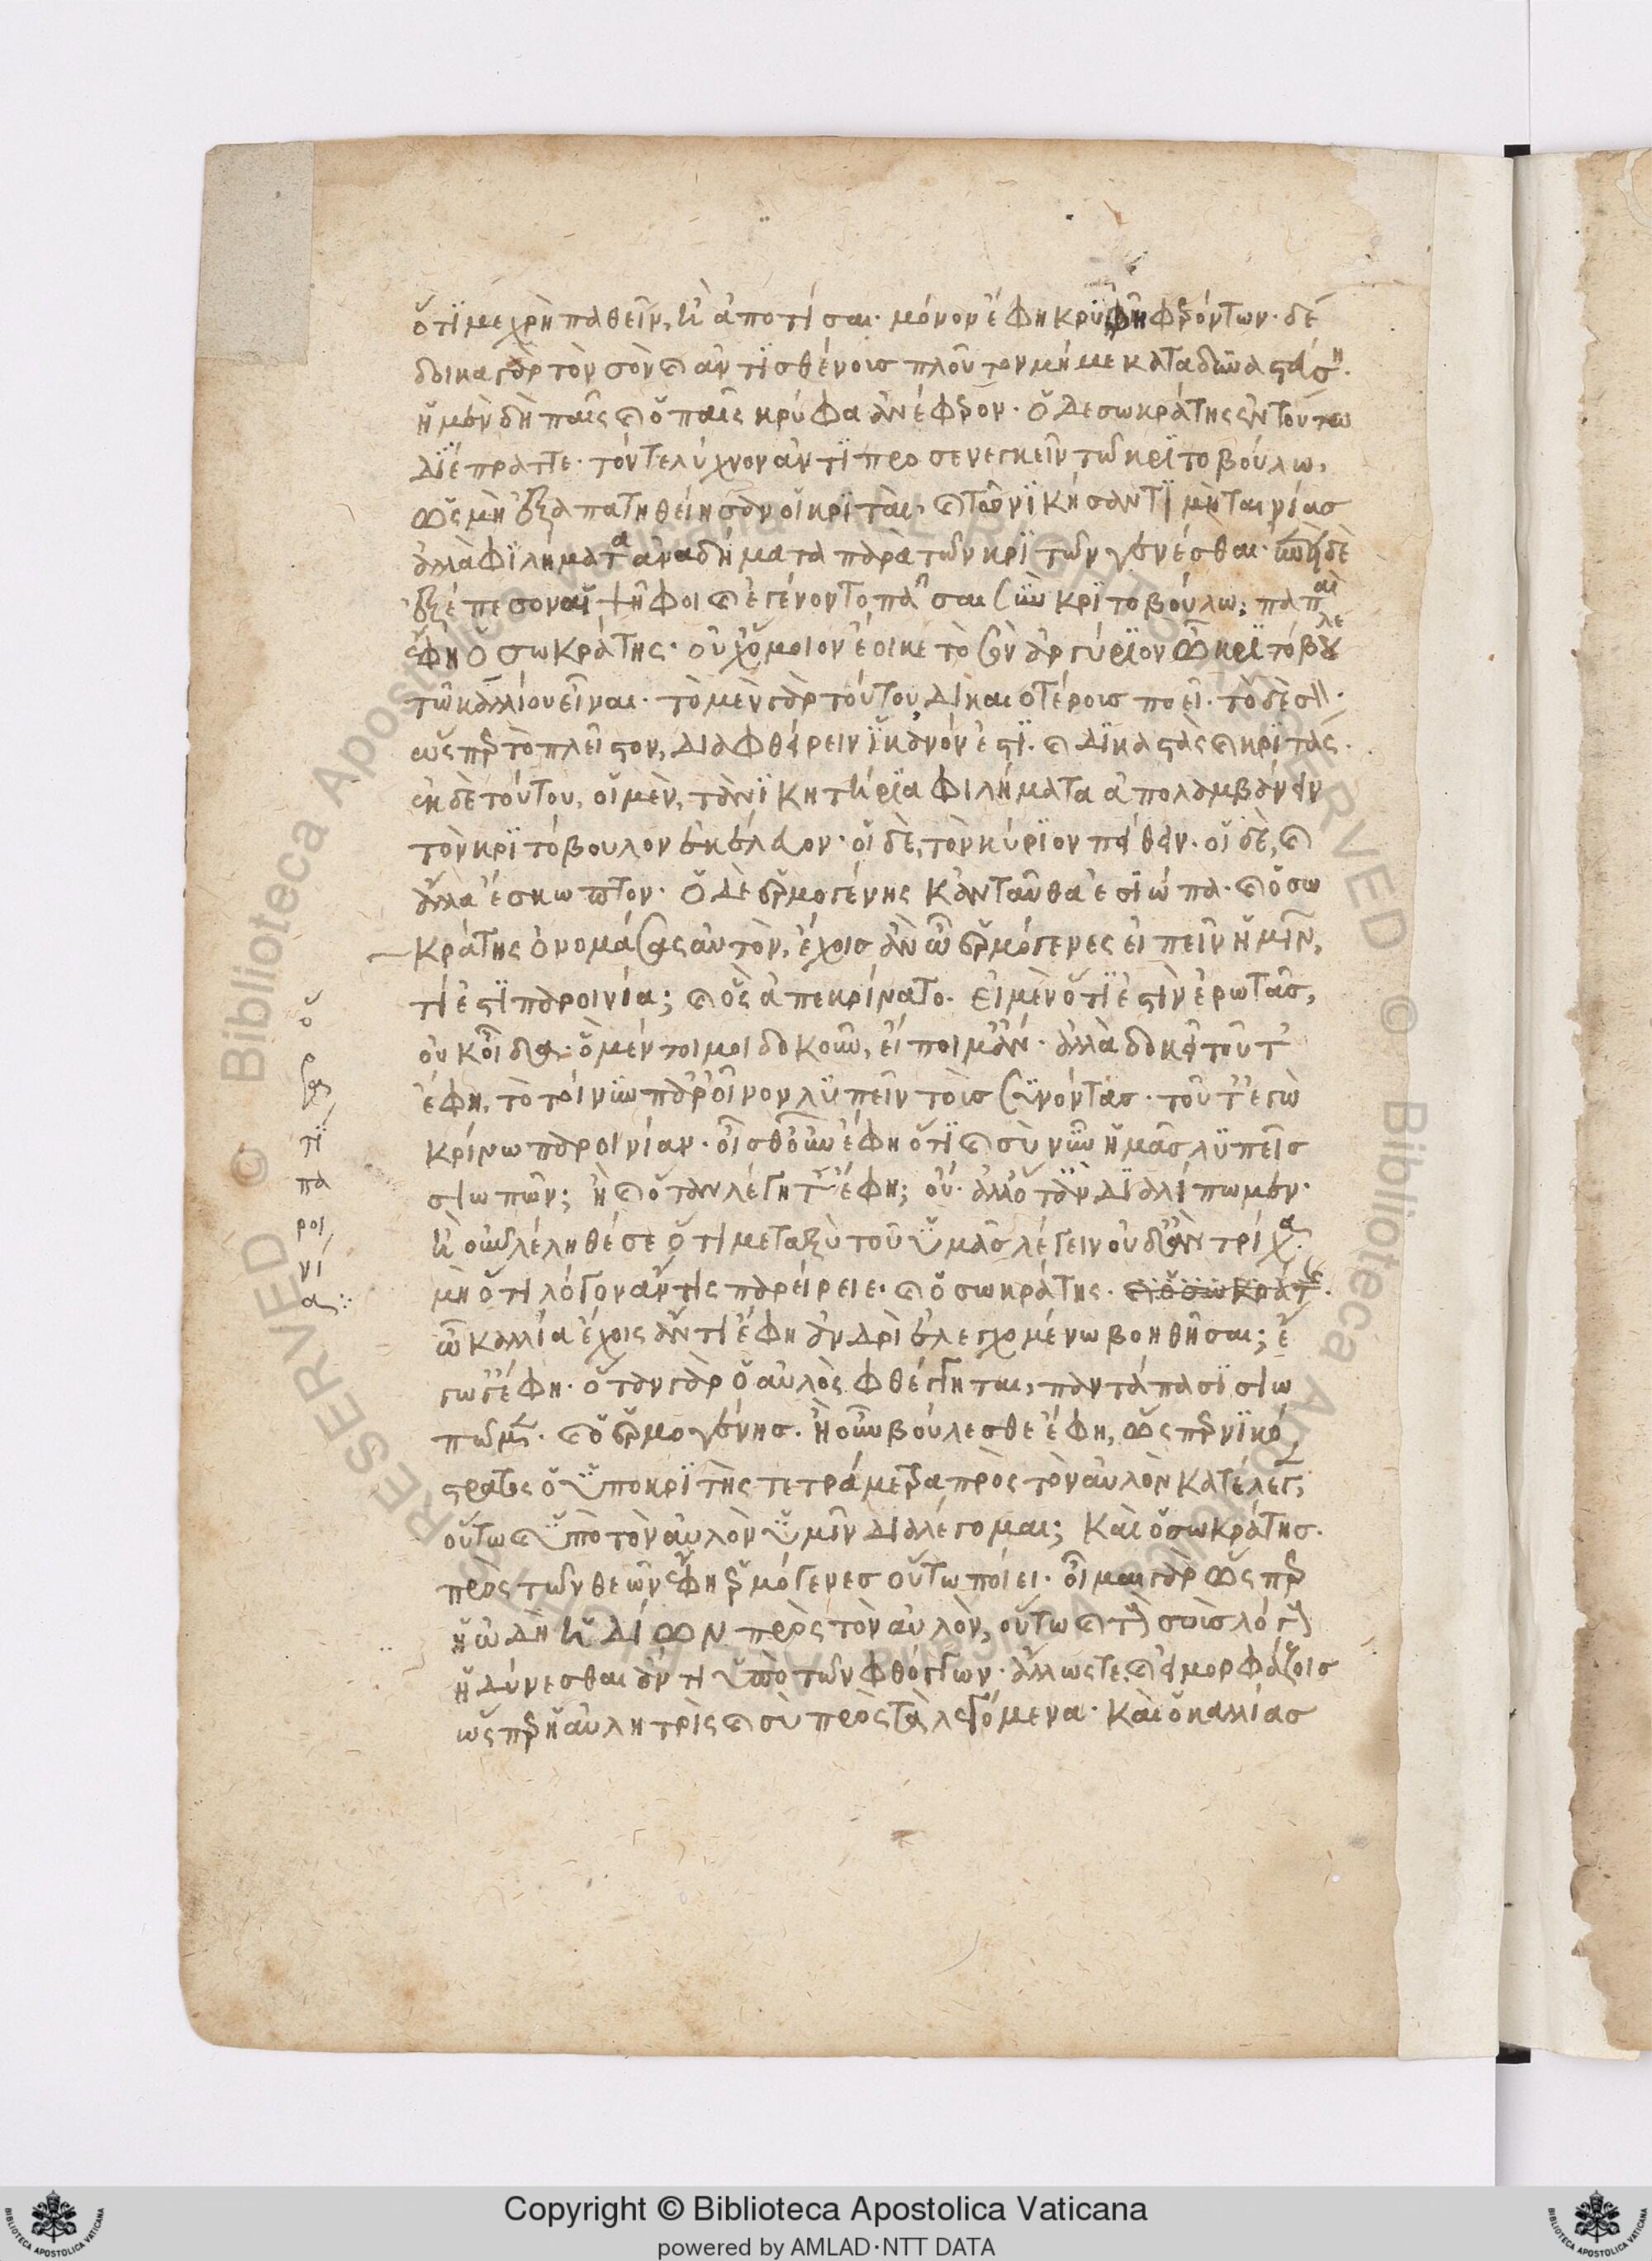 ὅτι με χρὴ παθεῖν, ἢ ἀποτίσαι· μόνον ἔφη κρύφη φερόντων· δέ
δοικα γὰρ τὸν σὸν καὶ ἀντισθένους πλοῦτον μή με καταδυναστεύσῃ·
ἡ μὲν δὴ παῖς καὶ ὁ παῖς κρύφα ἀνέφερον· ὁ δε σωκράτης ἐν τούτω
διέπραττε· τόν τε λύχνον ἀντιπροσενεγκεῖν τῶ κριτοβούλω,
ὡς μὴ ἐξαπατηθείησαν οἱ κριταὶ, καὶ τῶ νικήσαντι μὴ ταινίας
ἀλλὰ φιλήματα ἀναδήματα παρὰ τῶν κριτῶν γενέσθαι· ἐπεὶ δὲ
ἐξέπεσον αἱ ψῆφοι καὶ ἐγένοντο πᾶσαι σὺν κριτοβούλω; παπαὶ
ἔφη ὁ σωκράτης· οὐχ ὅμοιον ἔοικε τὸ σὸν ἀργύριον ὦ κριτόβουλε
τῶ καλλίου εἶναι· τὸ μὲν γὰρ τούτου δικαιοτέρους ποεῖ· τὸ δὲ σὸν
ὥσπερ τὸ πλεῖστον, διαφθείρειν ἱκανόν ἐστι· καὶ δικαστὰς καὶ κριτάς·
ἐκ δὲ τούτου, οἱ μὲν, τὰ νικητήρια φιλήματα ἀπολαμβάνειν
τὸν κριτόβουλον ἐκέλευον· οἱ δὲ, τὸν κύριον πείθειν· οἱ δὲ, καὶ
ἄλλα ἔσκωπτον· ὁ δὲ ἑρμογένης κἀνταῦθα ἐσιώπα· καὶ ὁ σω
κράτης ὀνομάσας αὐτὸν, ἔχοις ἂν ὦ ἑρμόγενες εἰπεῖν ἡμῖν,
τί ἐστι παροινία; καὶ ὃς ἀπεκρίνατο· εἰ μὲν ὅτι ἐστὶν ἐρωτᾶς,
οὐκ οἶδα· ὃ μέντοι μοι δοκοῦν, εἴποιμ' ἄν· ἀλλὰ δοκεῖ τοῦτ'
ἔφη, τὸ τοίνυν παρ' οἶνον λυπεῖν τοὺς συνόντας· τοῦτ' ἐγὼ
κρίνω παροινίαν· οἶσθ' οὖν ἔφη ὅτι καὶ σὺ νῦν ἡμᾶς λυπεῖς
σιωπῶν; ἦ καὶ ὅταν λέγητ' ἔφη; οὔ· ἀλλ' ὅταν διαλίπωμεν·
ἢ οὖν λέληθέ σε ὅτι μεταξὺ τοῦ ὑμᾶς λέγειν οὐδ' ἂν τρίχα·
μὴ ὅτι λόγον ἄν τις παρείρειε· καὶ ὁ σωκράτης· καὶ ὁ σωκράτης·
ὦ καλλία ἔχοις ἄν τι ἔφη ἀνδρὶ ἐλεγχομένω βοηθῆσαι; ἔ
γωγ' ἔφη· ὅταν γὰρ ὁ αὐλὸς φθέγγηται, παντάπασι σιω
πῶμεν· καὶ ὁ ἑρμογένης· ἦ οὖν βούλεσθε ἔφη, ὥσπερ νικό
στρατος ὁ ὑποκριτὴς τετράμετρα πρὸς τὸν αὐλὸν κατέλεγεν,
οὕτω καὶ ὑπὸ τὸν αὐλὸν ὑμῖν διαλέγομαι; καὶ ὁ σωκράτης·
πρὸς τῶν θεῶν ἔφη ἑρμόγενες οὕτω ποίει· οἶμαι γὰρ ὥσπερ
ἡ ὠδὴ ἡδίων πρὸς τὸν αὐλὸν, οὕτω καὶ τοὺς σοὺς λόγους
ἡδύνεσθαι ἄν τι ὑπὸ τῶν φθόγγων· ἄλλως τε καὶ εἰ μορφάζοις
ὥσπερ ἡ αὐλητρὶς καὶ σὺ πρὸς τὰ λεγόμενα· καὶ ὁ καλλίας
ὅ
ρος
τί
πα
ροι
νί
ας
Copyright © Biblioteca Apostolica Vaticana
powered by AMLAD·NTT DATA